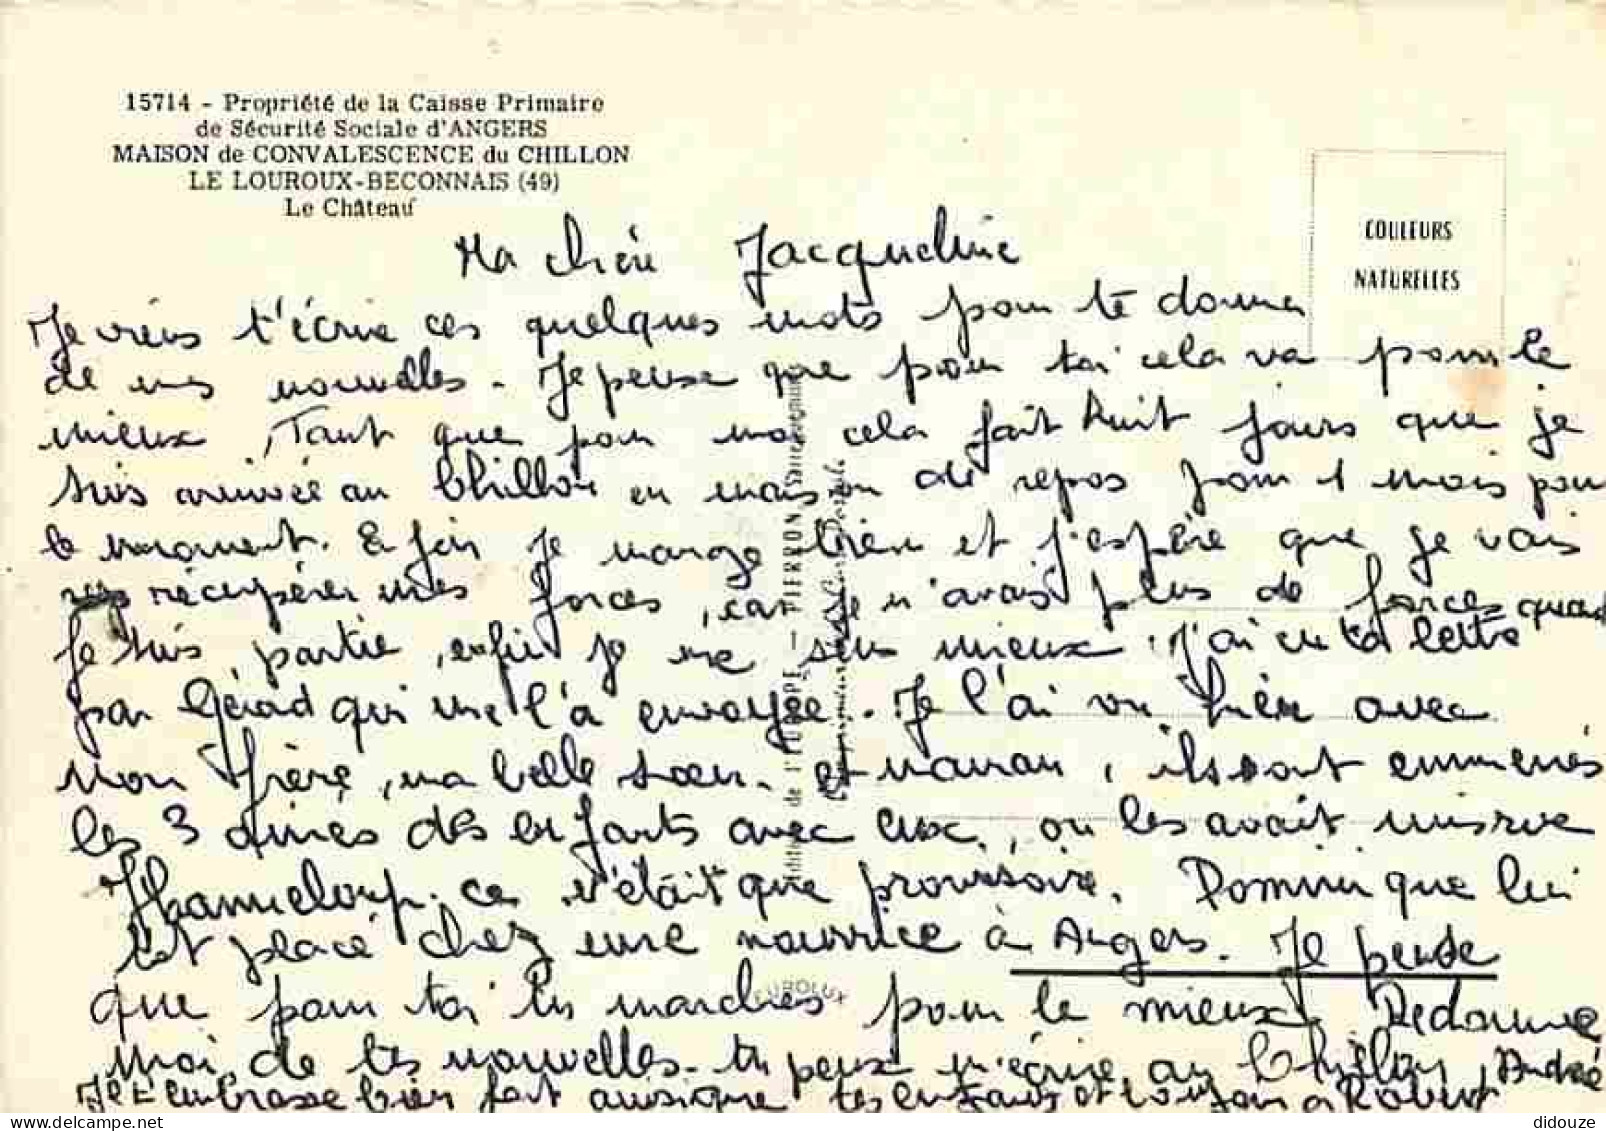 15714 - Propriété de la Caisse Primaire
de Sécurité Sociale d'ANGERS
MAISON de CONVALESCENCE du CHILLON
LE LOUROUX-BECONNAIS (49)
Le Château
COULEURS
NATURELLES
Ma chère Jacqueline
Je viens t'écrire ces quelques mots pour te donner
de mes nouvelles. Je pense que pour toi cela va pour le
mieux, Tant que pour moi cela fait huit jours que je
suis arrivée au Chillon en maison de repos pour 1 mois pour
le moment. Enfin je mange bien et j'espère que je vais
récupérer mes forces, car je n'avais plus de forces quand
je suis partie, enfin je me sens mieux. J'ai eu ta lettre
par Gérard qui me l'a envoyée. Je l'ai vu hier avec
mon frère, ma belle soeur et maman, ils sont emmenés
les 3 ainés des enfants avec eux, on les avait mis rue
Chanteloup. ce n'était que provisoire. Dominique lui
est placé chez une nourrice à Angers. Je pense
que pour toi tu marches pour le mieux. Redonne
moi de tes nouvelles. tu peux m'écrire au Chillon, Andrée
Je t'embrasse bien fort ainsi que tes enfants et bonjour à Robert
Editions de l'EUROPE - PIERRON Sarreguemines
Correspondance Carte Postale
EUROLUX
www.delcampe.net
didouze